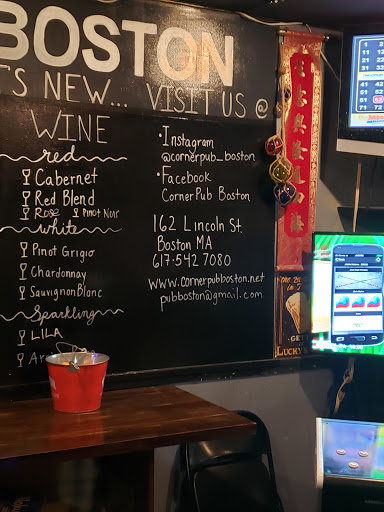 BOSTON
'S NEW... VISIT US @
WINE
red
Cabernet
Red Blend
Rose Pinot Noir
white
Pinot Grigio
Chardonnay
Sauvignon Blanc
Sparkling
LILA
• Instagram
@cornerpub_boston
• Facebook
Corner Pub Boston
162 Lincoln St.
Boston MA
617-542 7080
www.cornerpubboston.net
pubboston@gmail.com
LUCKY